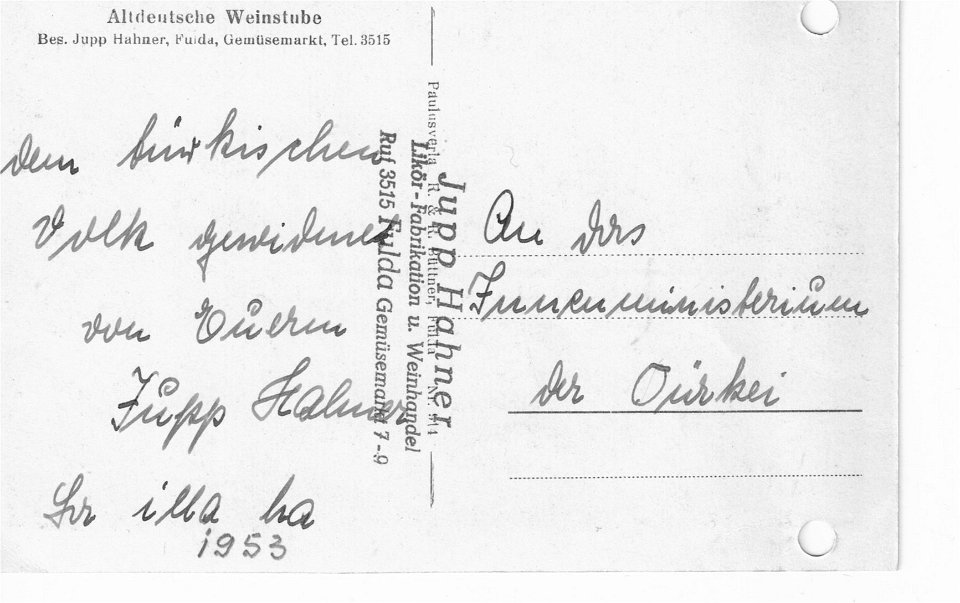 Altdeutsche Weinstube
Bes. Jupp Hahner, Fulda, Gemüsemarkt, Tel. 3515
dem türkischen
Volk gewidmet
von Euerm
Jupp Hahner
illa ha
1953
Paulusverla R. & H. Büttner, Fulda Nr.
Jupp Hahner
Likör-Fabrikation u. Weinhandel
Ruf 3515 Fulda Gemüsemarkt 7-9
An das
Innenministerium
der Türkei